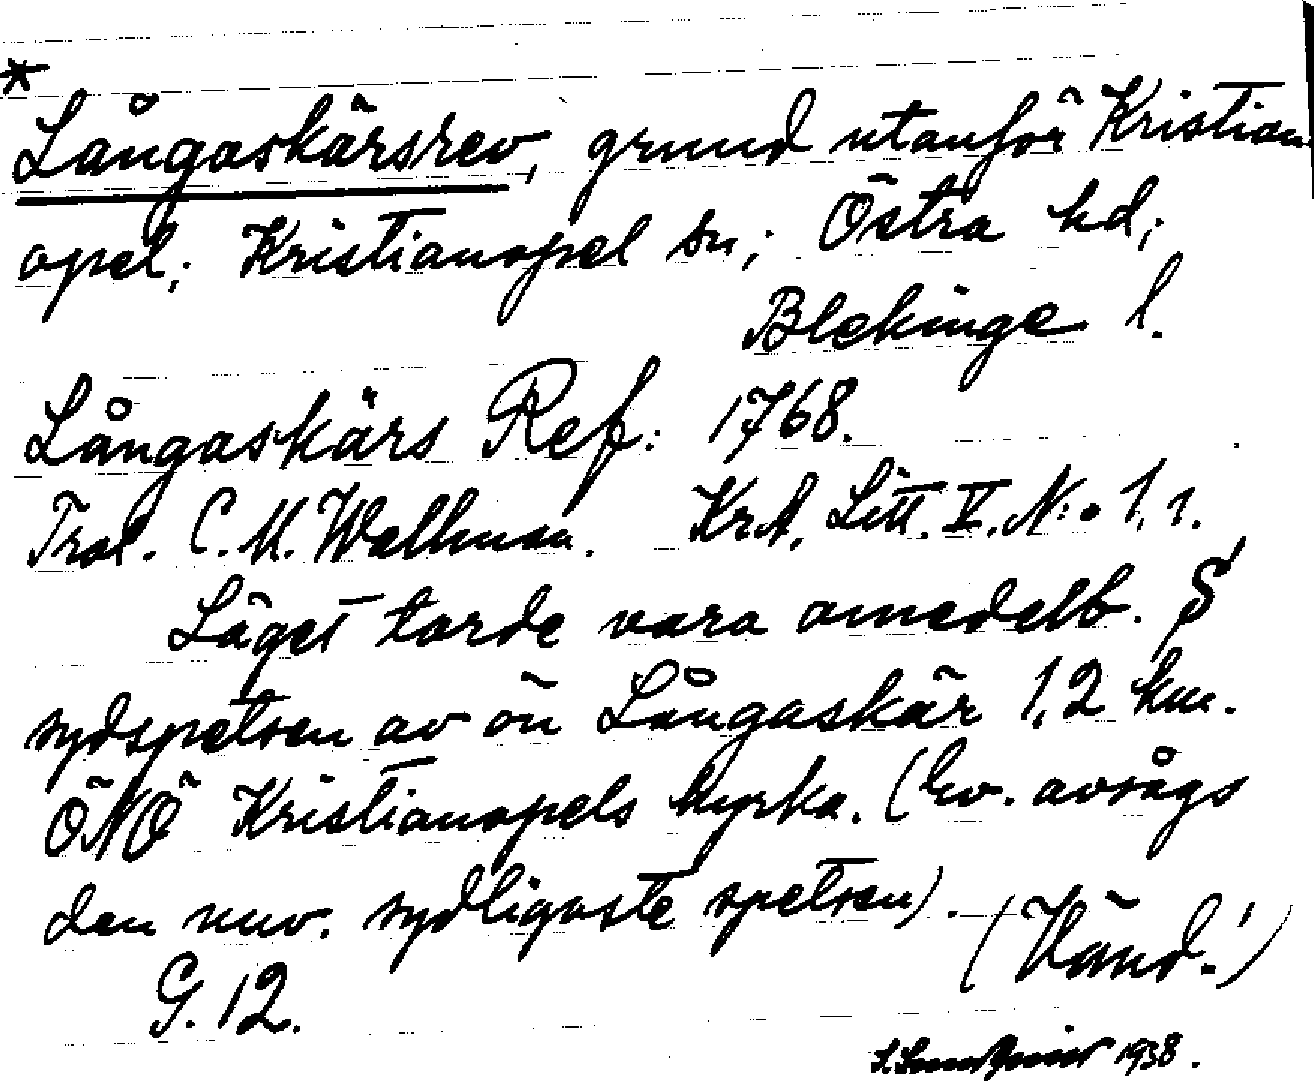 *
Långaskärsrev, grund utanför Kristian
opel; Kristianopel sn; Östra hd;
Blekinge l.
Långaskärs Ref: 1768.
Trol. C. M. Wallman. KrA, Litt. V. N:o 1, 1.
Läget torde vara omedelb. S
sydspetsen av ön Långaskär 1,2 km.
ÖNÖ Kristianopels kyrka. (Ev. avsågs
den nuv. sydligaste spetsen).
(Vänd!)
G. 12.
1938.